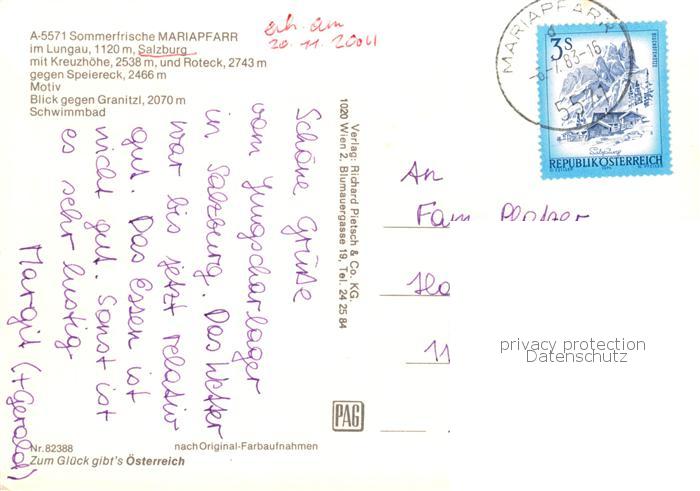 A-5571 Sommerfrische MARIAPFARR
im Lungau, 1120 m, Salzburg
mit Kreuzhöhe, 2538 m, und Roteck, 2743 m
gegen Speiereck, 2466 m
Motiv
Blick gegen Granitzl, 2070 m
Schwimmbad
erh. am
20.11.2004
Schöne Grüße
vom Jungscharlager
in Salzburg. Das Wetter
war bis jetzt relativ
gut. Das Essen ist
nicht gut. Sonst ist
es sehr lustig
Margit (+Gerald)
Verlag: Richard Pietsch & Co. KG.
1020 Wien 2, Blumauergasse 19, Tel. 24 25 84
MARIAPFARR
-6.-7.83-16
5571
3s
Salzburg
REPUBLIK ÖSTERREICH
An
Fam
11
privacy protection
Datenschutz
PAG
Nr. 82388
nach Original-Farbaufnahmen
Zum Glück gibt's Österreich